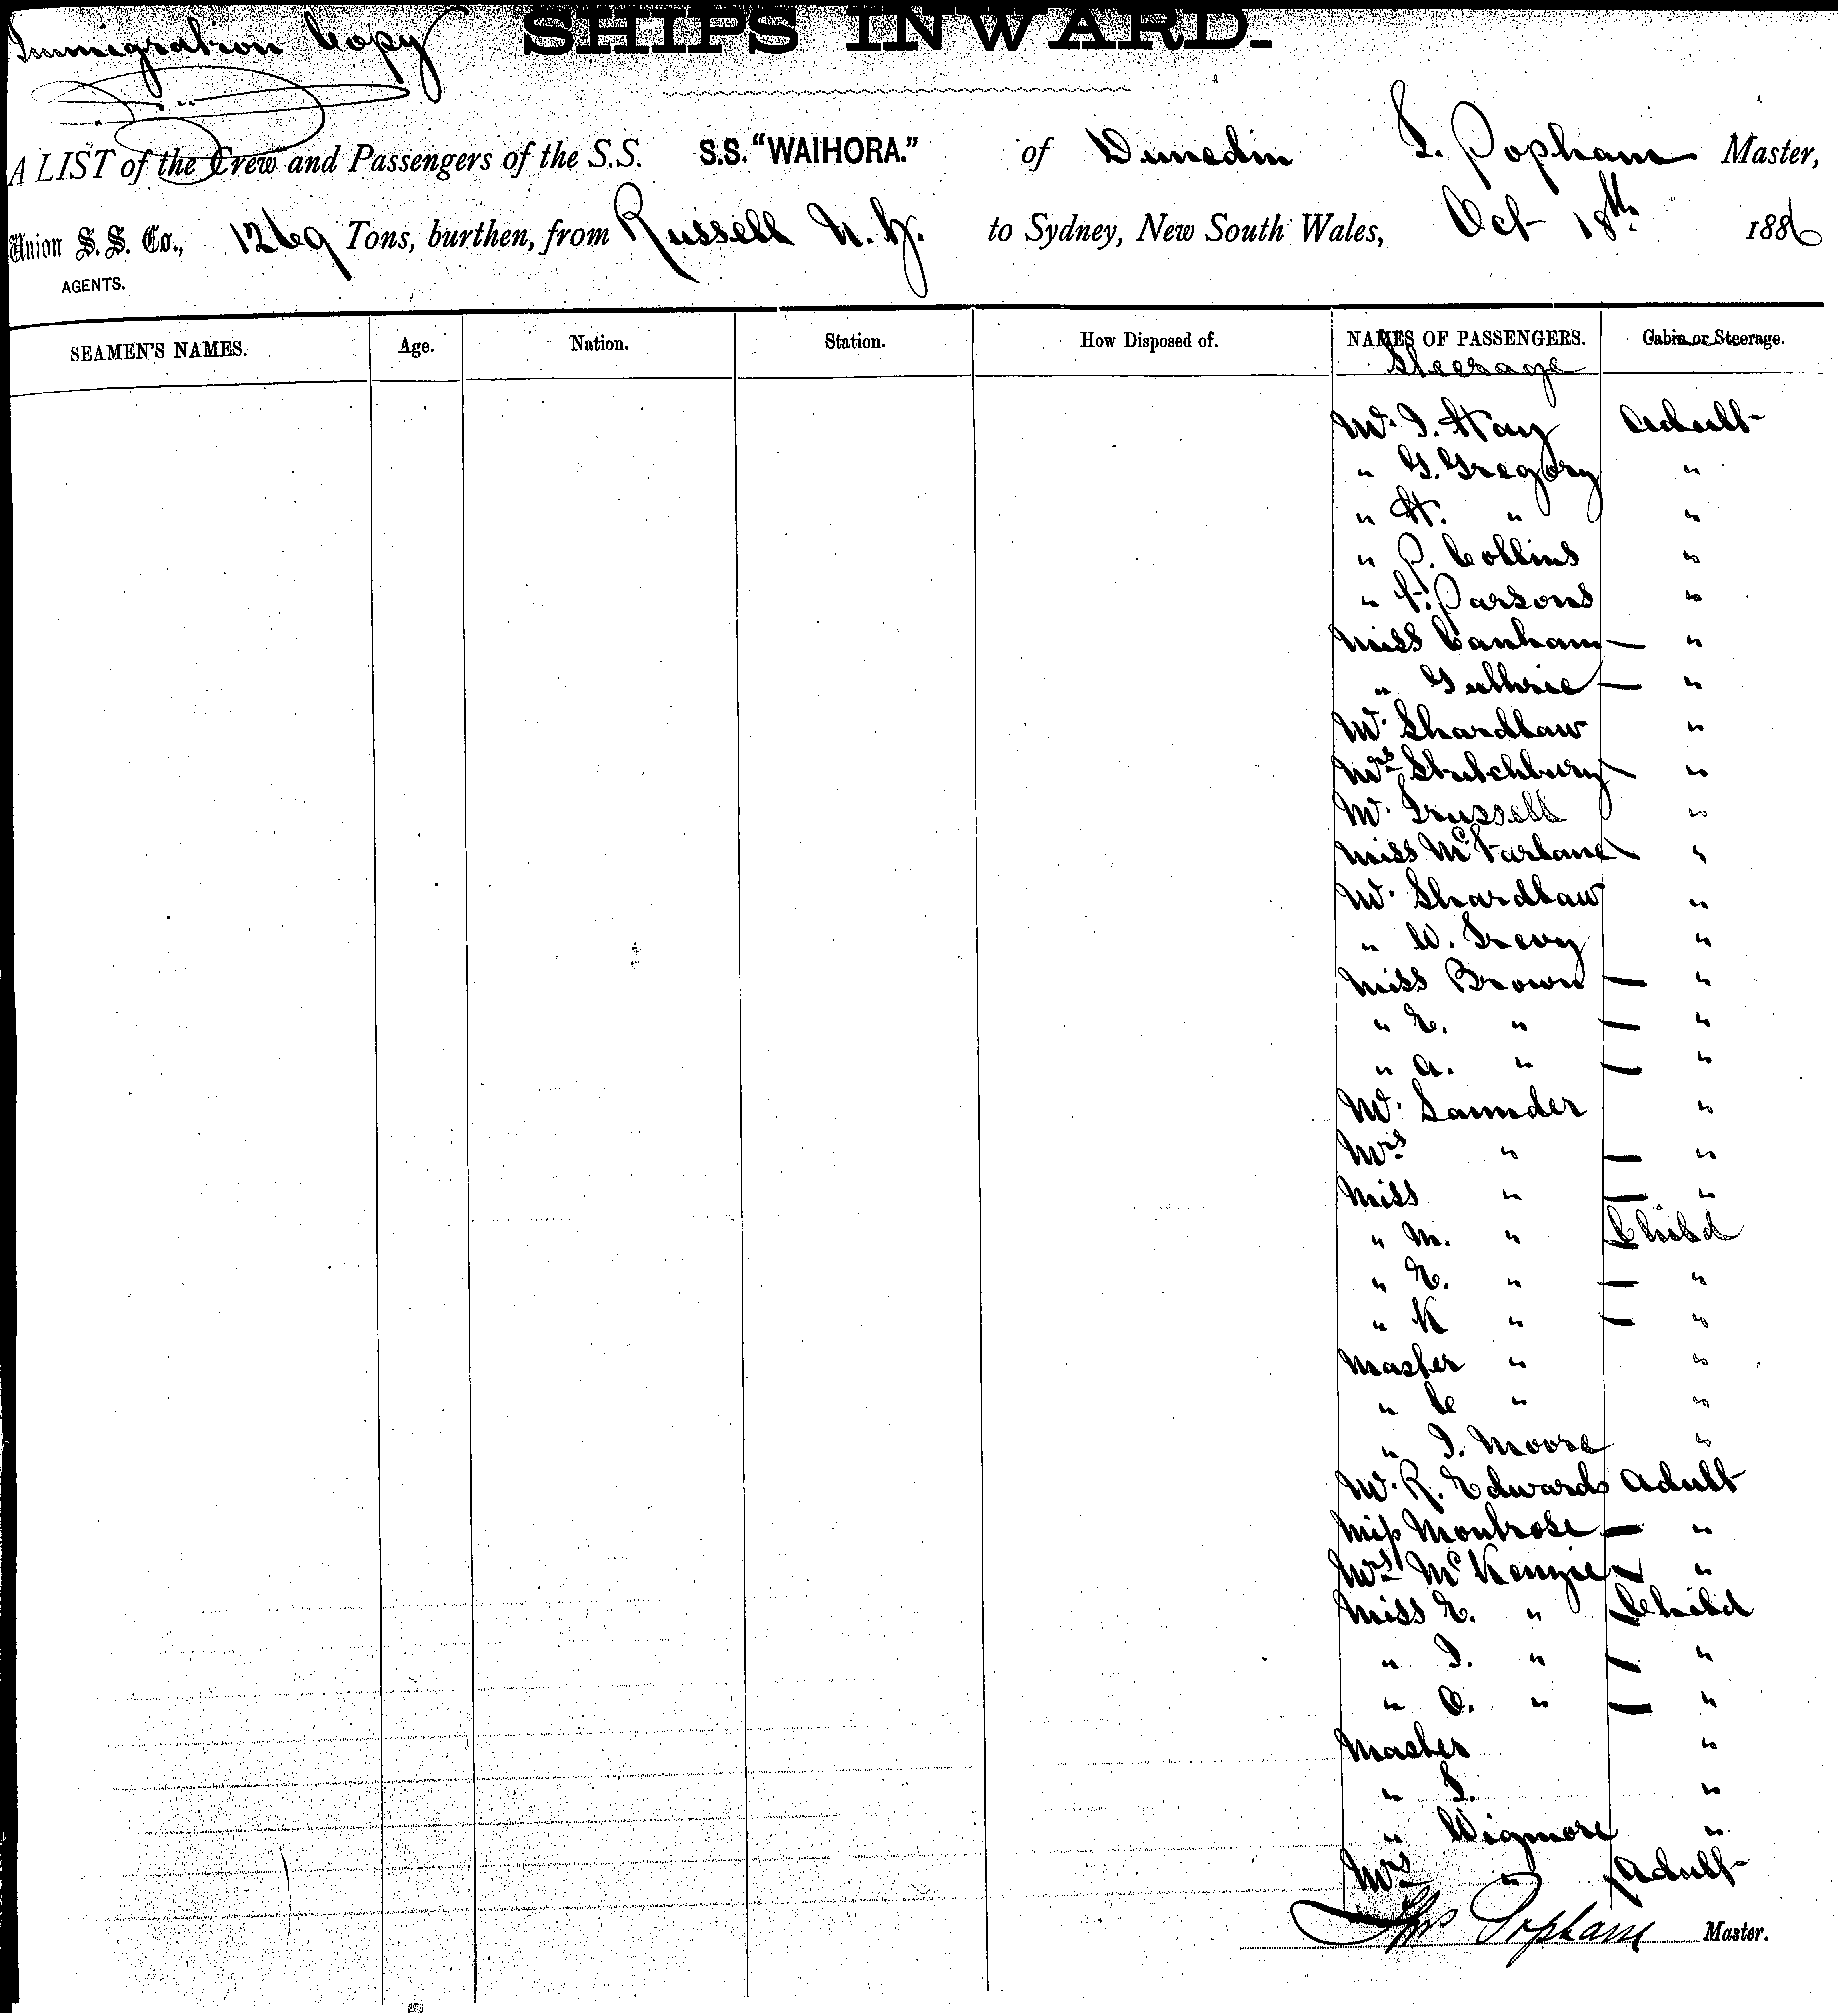 Immigration Copy
SHIPS INWARD.
A LIST of the Crew and Passengers of the S.S. S.S. "WAIHORA." of Dunedin T. Popham Master,
Union S. S. Co., 1269 Tons, burthen, from Russell N.Z. to Sydney, New South Wales, Oct 18th 1886
AGENTS.
SEAMEN'S NAMES. Age. Nation. Station. How Disposed of. NAMES OF PASSENGERS. Cabin or Steerage.
Steerage
Mr. J. Hay Adult
" G. Gregory "
" H. " "
" P. Collins "
" F. Parsons "
Miss Canham — "
" Guthrie — "
Mr. Shardlaw "
Mrs Stutchbury — "
Mr. Trussell "
Miss McFarlane — "
Mr. Shardlaw "
" W. Trevy "
Miss Brown — "
" E. " — "
" A. " — "
Mr. Saunder "
Mrs " — "
Miss " — "
" M. " Child
" E. " — "
" K " — "
Master " "
" C " "
" J. Moore "
Mr. R. Edwards Adult
Miss Montrose — "
Mrs McKenzie — "
Miss E. " Child
" J. " — "
" C. " — "
Master "
" J. "
" Wigmore "
Mrs " Adult
Thos Popham Master.